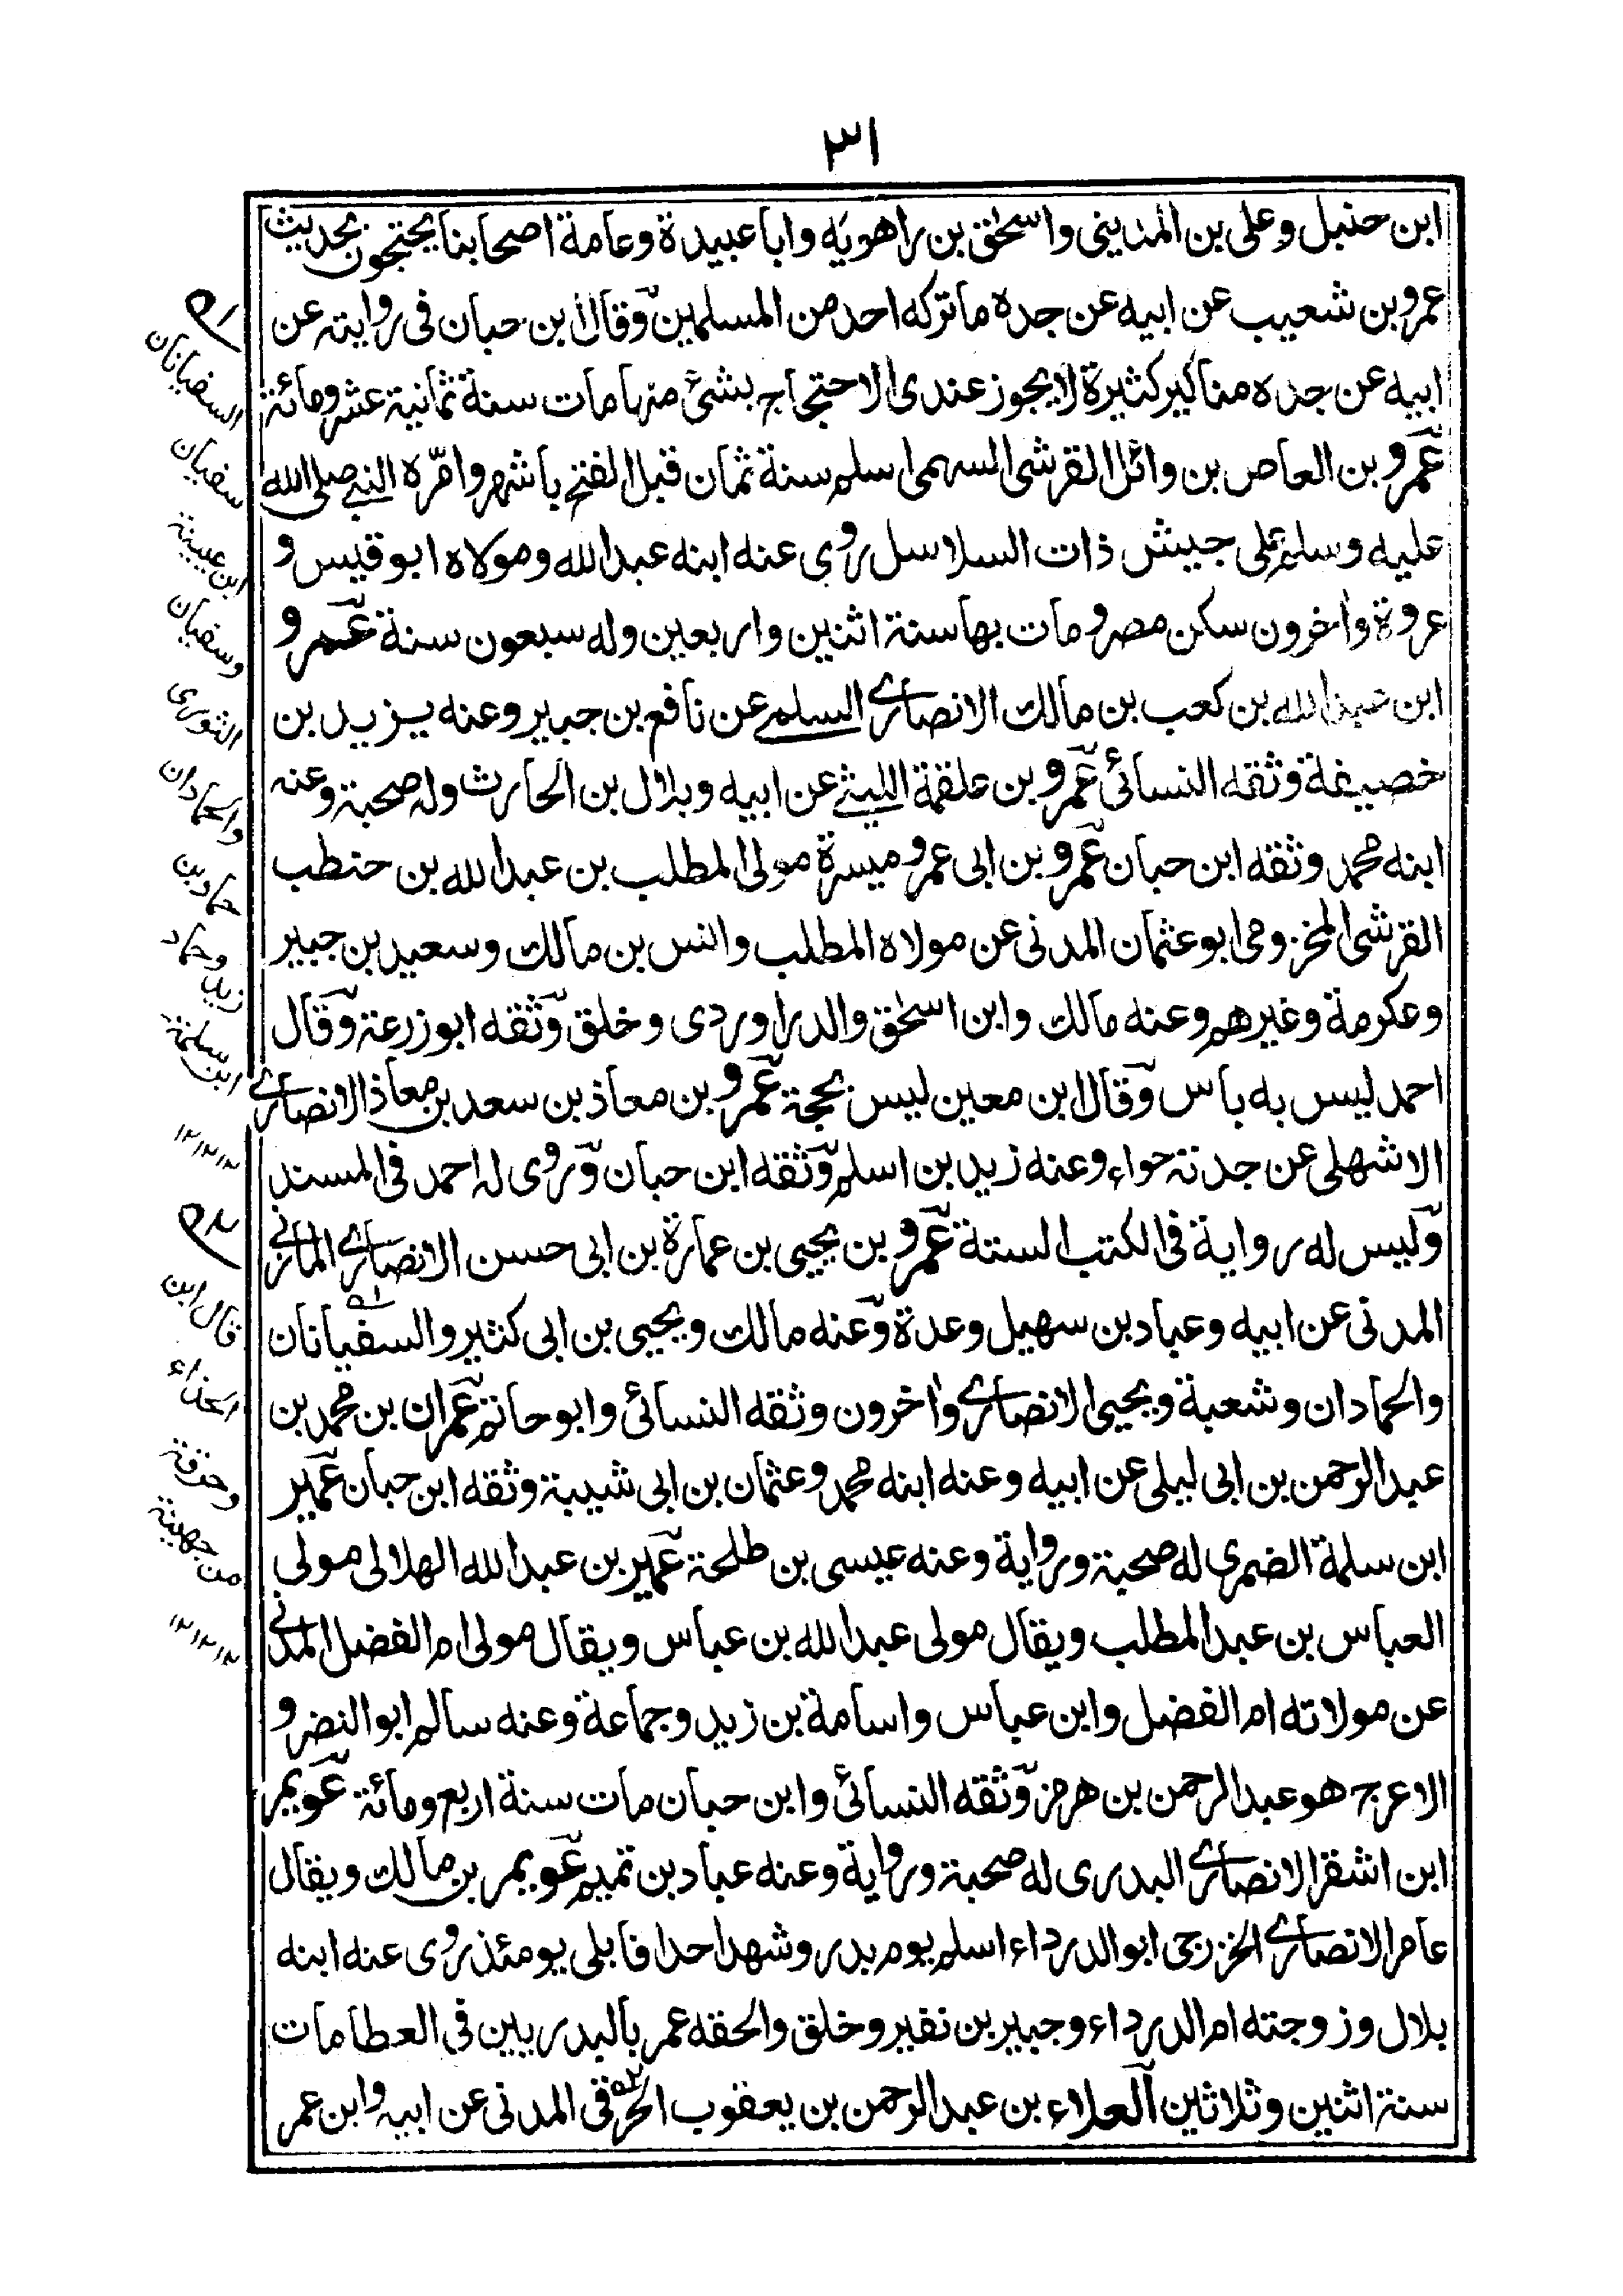 ٣١
ابن حنبل وعلى بن المديني واسحٰق بن راهويه وابا عبيدة وعامة اصحابنا يحتجون بحديث
عمرو بن شعيب عن ابيه عن جده ما تركه احد من المسلمين وقال ابن حبان فى روايته عن
ابيه عن جده مناكير كثيرة لا يجوز عندى الاحتجاج بشئ منها مات سنة ثمانية عشر ومائة
عمرو بن العاص بن وائل القرشى السهمى اسلم سنة ثمان قبل الفتح باشهر وامّره النبى صلى الله
عليه وسلم على جيش ذات السلاسل روى عنه ابنه عبد الله ومولاه ابو قيس و
عروة واٰخرون سكن مصر ومات بها سنة اثنين واربعين وله سبعون سنة عمرو
ابن عبد الله بن كعب بن مالك الانصارى السلمى عن نافع بن جبير وعنه يزيد بن
خصيفة وثقه النسائى عمرو بن علقمة الليثى عن ابيه وبلال بن الحارث وله صحبة وعنه
ابنه محمد وثقه ابن حبان عمرو بن ابى عمرو ميسرة مولى المطلب بن عبد الله بن حنطب
القرشى المخزومى ابو عثمان المدنى عن مولاه المطلب وانس بن مالك وسعيد بن جبير
وعكرمة وغيرهم وعنه مالك وابن اسحٰق والدراوردى وخلق وثقه ابو زرعة وقال
احمد ليس به باس وقال ابن معين ليس بحجة عمرو بن معاذ بن سعد بن معاذ الانصارى
الاشهلى عن جدته حواء وعنه زيد بن اسلم وثقه ابن حبان وروى له احمد فى المسند
وليس له رواية فى الكتب الستة عمرو بن يحيى بن عمارة بن ابى حسن الانصارى المازنى
المدنى عن ابيه وعباد بن سهيل وعدة وعنه مالك ويحيى بن ابى كثير والسفيانان
والحمادان وشعبة ويحيى الانصارى واٰخرون وثقه النسائى وابو حاتم عمران بن محمد بن
عبد الرحمن بن ابى ليلى عن ابيه وعنه ابنه محمد وعثمان بن ابى شيبة وثقه ابن حبان عمير
ابن سلمة الضمرى له صحبة ورواية وعنه عيسى بن طلحة عمير بن عبد الله الهلالى مولى
العباس بن عبد المطلب ويقال مولى عبد الله بن عباس ويقال مولى ام الفضل المدنى
عن مولاته ام الفضل وابن عباس واسامة بن زيد وجماعة وعنه سالم ابو النضر و
الاعرج هو عبد الرحمن بن هرمز وثقه النسائى وابن حبان مات سنة اربع ومائة عويمر
ابن اشقر الانصارى البدرى له صحبة ورواية وعنه عباد بن تميم عويمر بن مالك ويقال
عامر الانصارى الخزرجى ابو الدرداء اسلم يوم بدر وشهد احدا فابلى يومئذ روى عنه ابنه
بلال وزوجته ام الدرداء وجبير بن نفير وخلق والحقه عمر بالبدريين فى العطا مات
سنة اثنين وثلاثين العلاء بن عبد الرحمن بن يعقوب الحرقى المدنى عن ابيه وابن عمر
السفيانان
سفيان
ابن عيينة
وسفيان
الثورى
والحمادان
حماد بن
زيد وحماد
ابن سلمة
١٢ ١٢ ١٢
قال ابن
الحذاء
وحرقة
من جهينة
١٢ ١٢ ١٢